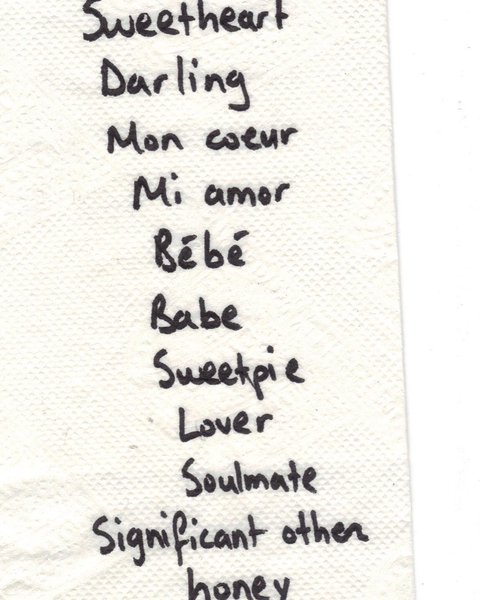 Sweetheart
Darling
Mon coeur
Mi amor
Bébé
Babe
Sweetpie
Lover
Soulmate
Significant other
honey